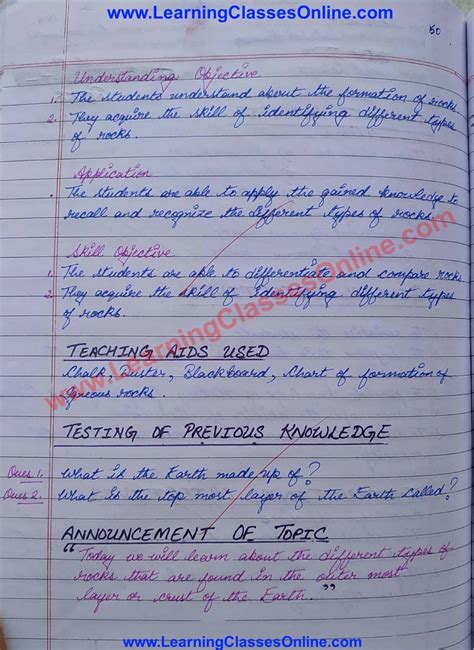 www.LearningClassesOnline.com
50
Understanding Objective
1. The students understand about the formation of rocks.
2. They acquire the skill of identifying different types
of rocks.
Application
. The students are able to apply the gained knowledge to
recall and recognize the different types of rocks.
Skill Objective
1. The students are able to differentiate and compare rocks
2. They acquire the skill of identifying different types
of rocks.
www.LearningClassesOnline.com
TEACHING AIDS USED
Chalk, Duster, Blackboard, Chart of formation of
Igneous rocks.
TESTING OF PREVIOUS KNOWLEDGE
Ques 1. What is the Earth made up of?
Ques 2. What is the top most layer of the Earth called?
ANNOUNCEMENT OF TOPIC
"Today we will learn about the different types of
rocks that are found in the outer most
layer or crust of the Earth."
www.LearningClassesOnline.com